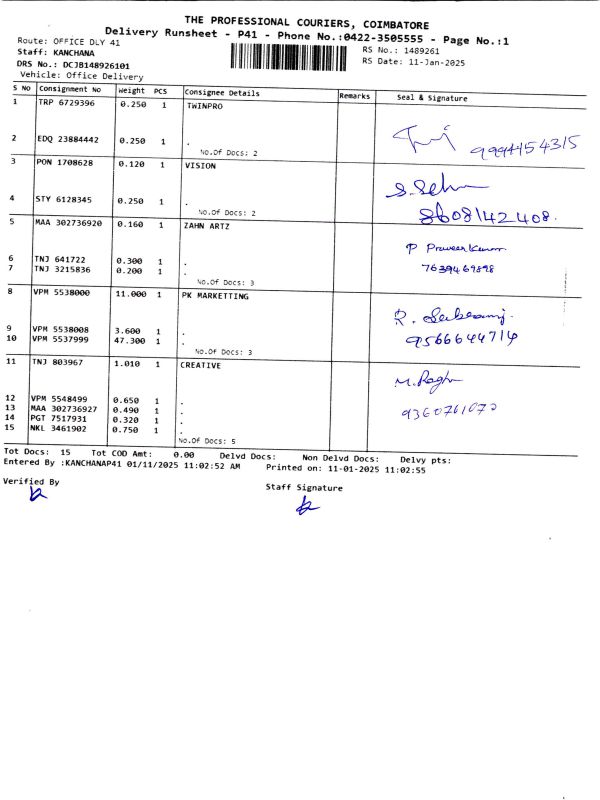 THE PROFESSIONAL COURIERS, COIMBATORE
Delivery Runsheet - P41 - Phone No.:0422-3505555 - Page No.:1
Route: OFFICE DLY 41
Staff: KANCHANA
DRS No.: DCJB148926101
Vehicle: Office Delivery
RS No.: 1489261
RS Date: 11-Jan-2025
S No Consignment No Weight PCS Consignee Details Remarks Seal & Signature
1 TRP 6729396 0.250 1 TWINPRO
2 EDQ 23884442 0.250 1 .
9994454315
No.Of Docs: 2
3 PON 1708628 0.120 1 VISION
4 STY 6128345 0.250 1 .
8608142408.
No.Of Docs: 2
5 MAA 302736920 0.160 1 ZAHN ARTZ
P Praveen Kumar
6 TNJ 641722 0.300 1 .
7 TNJ 3215836 0.200 1 .
7639469898
No.Of Docs: 3
8 VPM 5538000 11.000 1 PK MARKETTING
9 VPM 5538008 3.600 1 .
10 VPM 5537999 47.300 1 .
9566644714
No.Of Docs: 3
11 TNJ 803967 1.010 1 CREATIVE
M. Raghu
12 VPM 5548499 0.650 1 .
13 MAA 302736927 0.490 1 .
14 PGT 7517931 0.320 1 .
15 NKL 3461902 0.750 1 .
No.Of Docs: 5
Tot Docs: 15 Tot COD Amt: 0.00 Delvd Docs: Non Delvd Docs: Delvy pts:
Entered By :KANCHANAP41 01/11/2025 11:02:52 AM Printed on: 11-01-2025 11:02:55
Verified By
Staff Signature